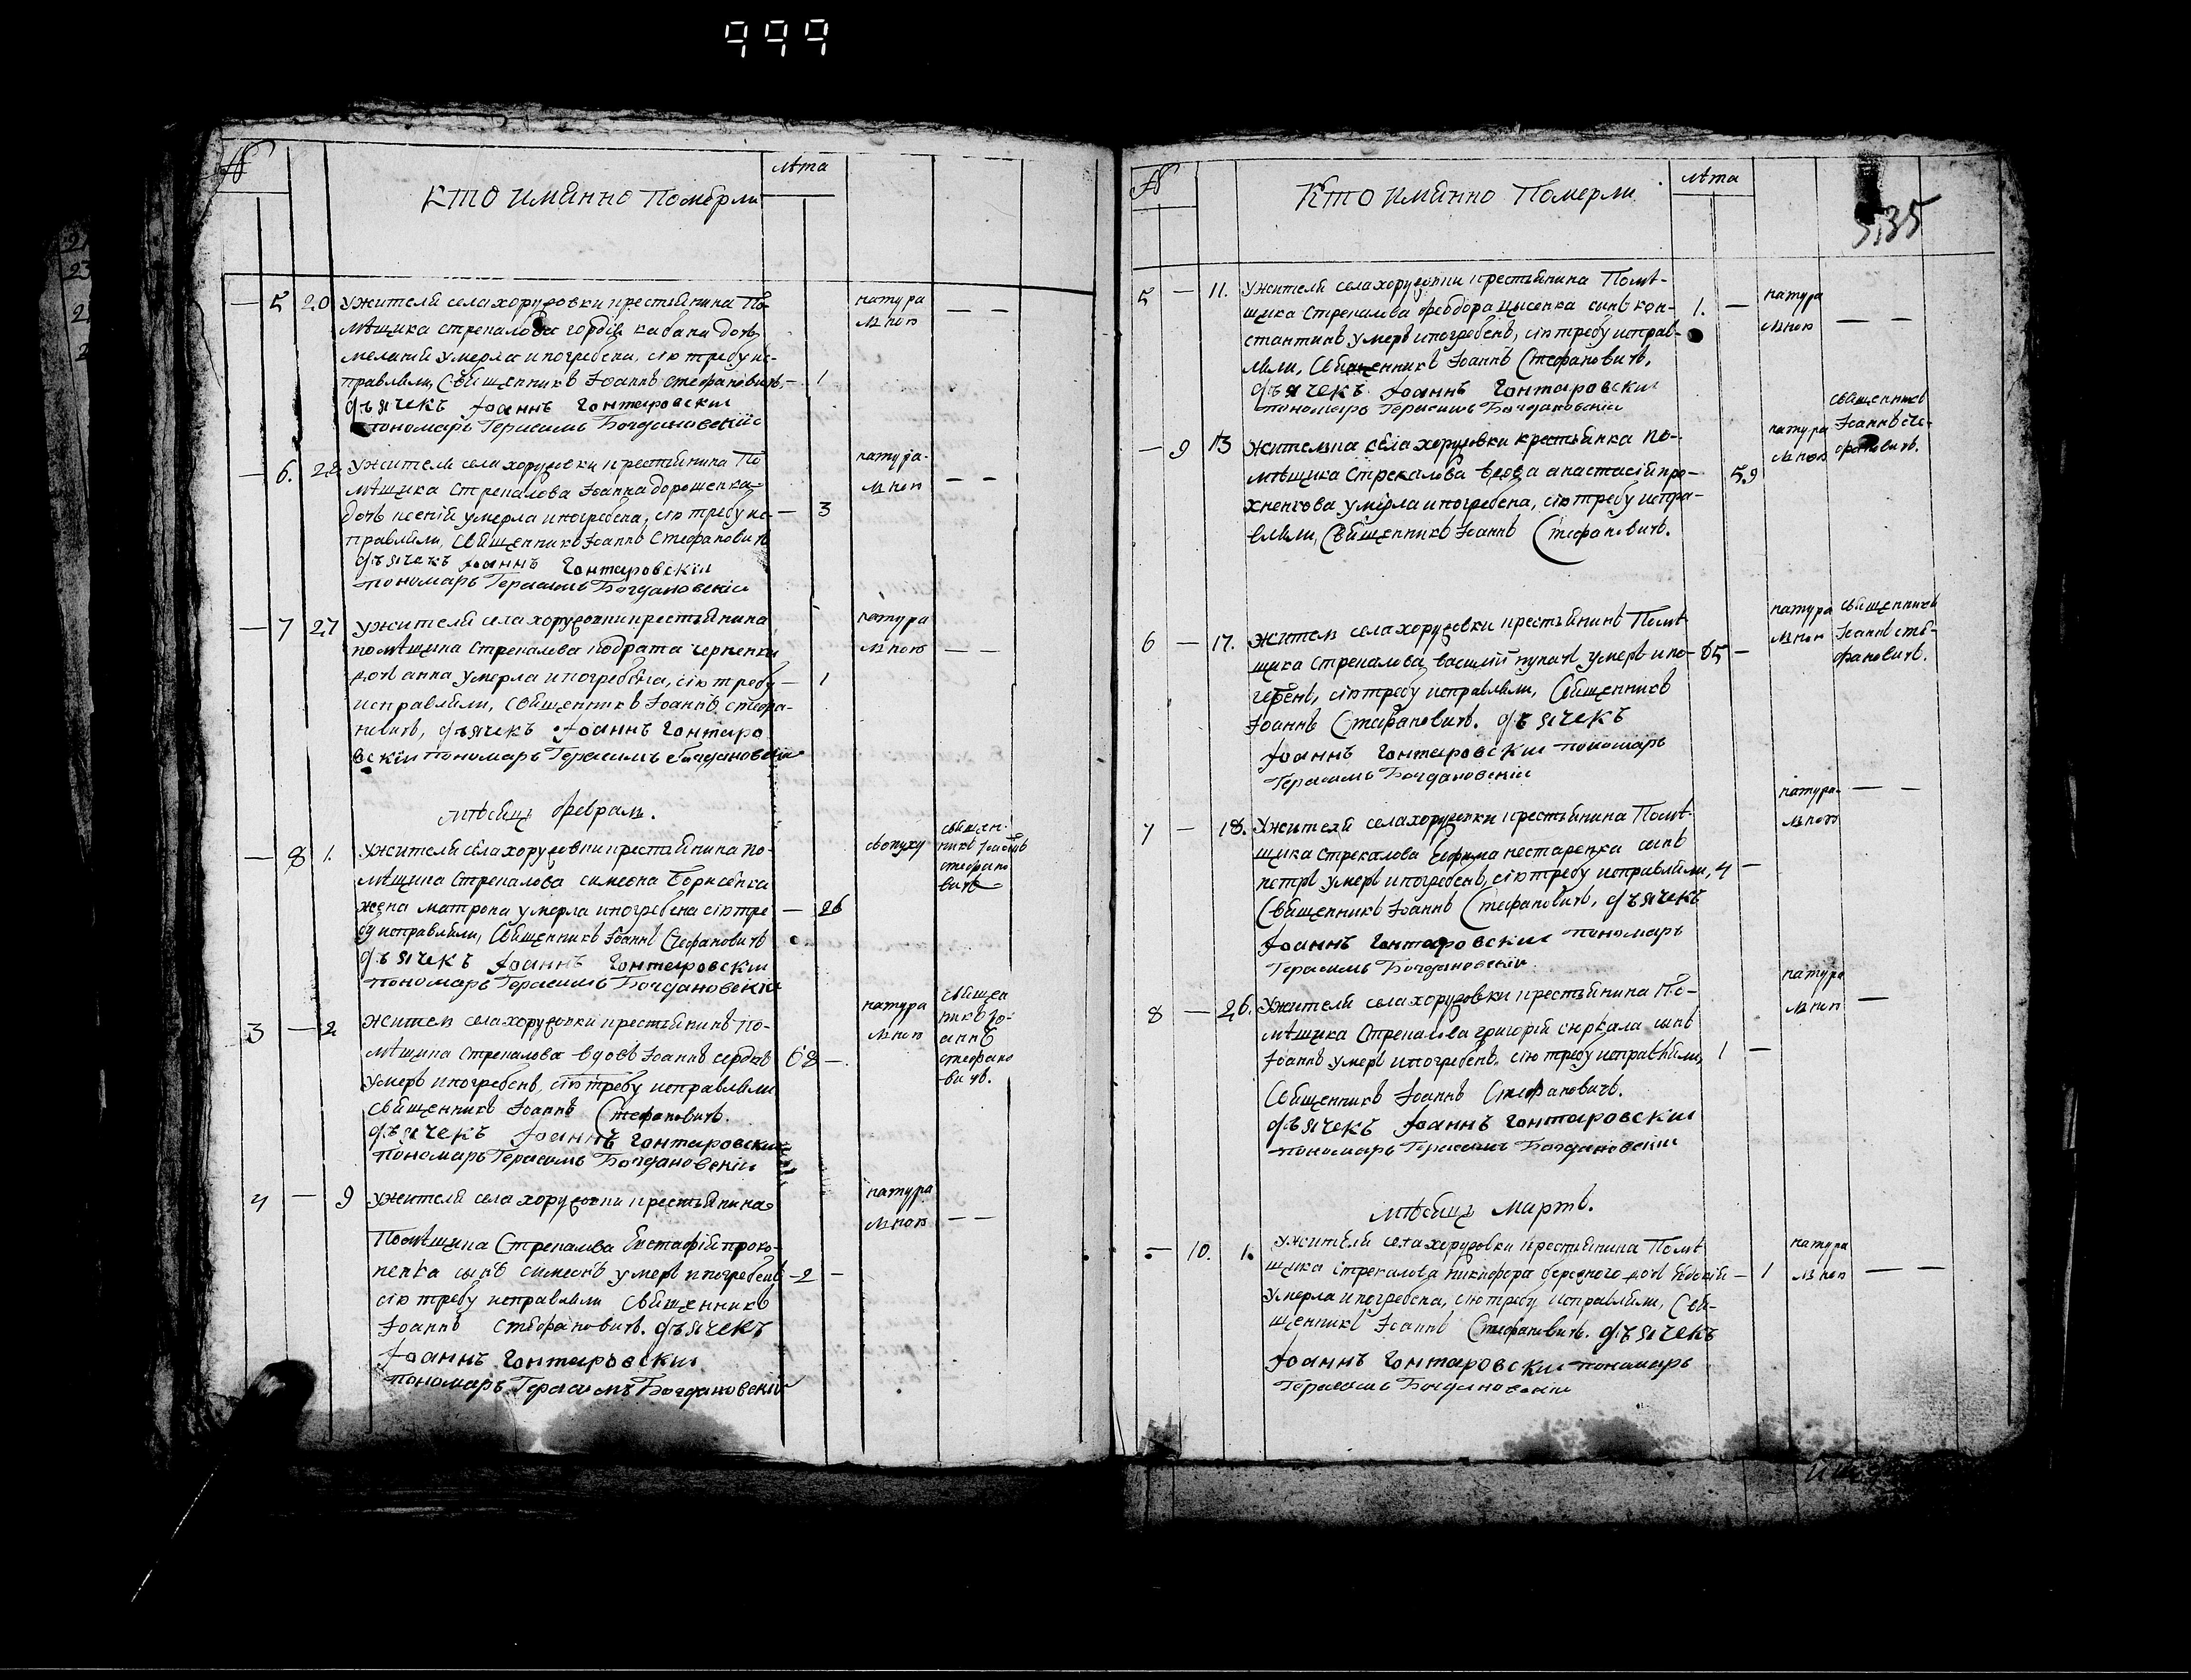 999
№
Кто имянно Померли
лѣта
5 20 у жителя села хоружовки крестьянина По-
мѣщика стрекалова гордѣя кабана дочь
меланія умерла и погребена, сію требу ис-
правляли, Священникъ Іоаннъ стефановичъ, — 1
натурально — —
дьячекъ Іоаннъ Гонтаровскии
пономарь Герасимъ Богдановскіи
— 6. 28. у жителя села хоружовки крестьянина По
мѣщика Стрекалова Іоанна дорошенка
дочь ксенія умерла и погребена, сію требу ис- — 3
правляли, Священникъ Іоаннъ Стефановичъ
натурально — —
дьячекъ Іоаннъ Гонтаровскіи
пономарь Герасимъ Богдановскіи
— 7 27 у жителя села хоружовки крестьянина
помѣщика Стрекалова кодрата черненка
дочь анна умерла и погребена, сію требу — 1
исправляли, Священникъ Іоаннъ стефа-
новичъ, дьячекъ Іоаннъ Гонтаро
вскіи пономарь Герасимъ Богдановскіи
натурально — —
мѣсяцъ февраль.
— 8 1. у жителя села хоружовки крестьянина по-
мѣщика Стрекалова симеона Борисенка
жена матрона умерла и погребена сію тре — 26
бу исправляли, Священникъ Іоаннъ Стефановичъ
дьячекъ Іоаннъ Гонтаровскии
пономарь Герасимъ Богдановскіи
свопуху
священ-
никъ Іоаннъ
стефано
вичъ
3 — 2 житель села хоружовки крестьянинъ по-
мѣщика Стрекалова вдовъ Іоаннъ сердюкъ 68 —
умеръ и погребенъ, сію требу исправляли
священникъ Іоаннъ Стефановичъ.
дьячекъ Іоаннъ Гонтаровскии
пономарь Герасимъ Богдановскіи
натурально
священ
никъ Іо-
аннъ
стефано
-вичъ.
4 — 9 у жителя села хоружовки крестьянина
Помѣщика Стрекалова Евстафій проко-
пенка сынъ симеонъ умеръ и погребенъ — 2 —
сію требу исправляли Священникъ
Іоаннъ стефановичъ. дьячекъ
Іоаннъ Гонтаровскии
пономарь Герасимъ Богдановскіи
натурально — —
№
Кто имянно Померли
лѣта
535
5 — 11. у жителя села хоружовки крестьянина Помѣ-
щика Стрекалова феодора цысенка сынъ кон- 1. —
стантинъ умеръ и погребенъ, сію требу исправ-
ляли, Священникъ Іоаннъ Стефановичъ,
дьячекъ Іоаннъ Гонтаровскии
пономарь Герасимъ Богдановскіи
натурально — —
— 9 13 жительна села хоружовки крестьянка по-
мѣщика Стрекалова вдова анастасія про- 59
хненкова умерла и погребена, сію требу испра-
вляли, Священникъ Іоаннъ Стефановичъ.
натурально
священникъ
Іоаннъ сте-
фановичъ.
6 — 17. житель села хоружовки крестьянинъ Помѣ
щика стрекалова василій пугачь умеръ и по- 65 —
гребенъ, сію требу исправляли, Священникъ
Іоаннъ Стефановичъ. дьячекъ
Іоаннъ Гонтаровскии пономарь
Герасимъ Богдановскіи
натурально
священникъ
Іоаннъ сте-
фановичъ.
7 — 18. у жителя села хоружовки крестьянина Помѣ
щика стрекалова Ефима нестаренка сынъ
петръ умеръ и погребенъ, сію требу исправляли, 4 —
Священникъ Іоаннъ Стефановичъ, дьячекъ
Іоаннъ Гонтаровскии пономарь
Герасимъ Богдановскіи
натурально — —
8 — 26. у жителя села хоружовки крестьянина По-
мѣщика Стрекалова григорій сынъ
Іоаннъ умеръ и погребенъ, сію требу исправляли, 1 —
Священникъ Іоаннъ Стефановичъ.
дьячекъ Іоаннъ Гонтаровскии
пономарь Герасимъ Богдановскіи
натурально —
мѣсяцъ Мартъ.
— 10. 1. у жителя села хоружовки крестьянина Помѣ
щика стрекалова никифора березного дочь Евдокія — 1
умерла и погребена, сію требу исправляли, Свя-
щенникъ Іоаннъ Стефановичъ. дьячекъ
Іоаннъ Гонтаровскии пономарь
Герасимъ Богдановскіи
натурально — —